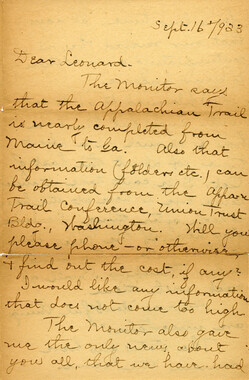 Sept. 16 1933
Dear Leonard.
The Monitor says
that the Appalachian Trail
is nearly completed from
Maine to Ga. Also that
information (folders etc.) can
be obtained from the Appa.
Trail Conference, Union Trust
Bldg., Washington. Will you
please phone - or otherwise,
& find out the cost, if any?
I would like any information
that does not come too high
The Monitor also gave
me the only news about
you all, that we have had